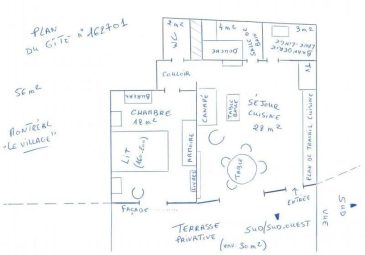 PLAN
DU GÎTE n° 162701
56 m²
MONTRÉAL
"LE VILLAGE"
2 m²
WC
4 m²
DOUCHE
SALLE DE BAIN
3 m²
BUANDERIE
LAVE-LINGE
COULOIR
TV
BUREAU
CHAMBRE
18 m²
LIT
(160x200)
ARMOIRE
LIVRES
CANAPÉ
TABLE
BASSE
SÉJOUR
CUISINE
28 m²
TABLE
PLAN DE TRAVAIL CUISINE
FAÇADE
ENTRÉE
TERRASSE
PRIVATIVE
(env. 30 m²)
SUD/SUD-OUEST
VUE
SUD